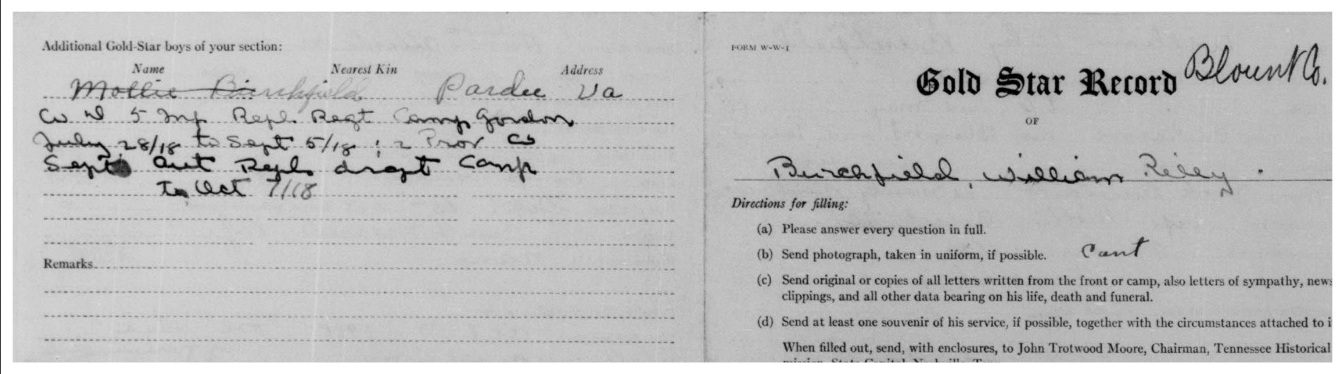 Additional Gold-Star boys of your section:
Name Nearest Kin Address
Mollie Birchfield Pardee Va
Co D 5 Inf Repl Regt Camp Gordon
July 28/18 to Sept 5/18 ; 2 Prov Co
Sept Aut Repl draft Camp
to Oct 7/18
Remarks
FORM W-W-1
Blount Co.
Gold Star Record
OF
Burchfield, William Riley.
Directions for filling:
(a) Please answer every question in full.
(b) Send photograph, taken in uniform, if possible. Cant
(c) Send original or copies of all letters written from the front or camp, also letters of sympathy, news
clippings, and all other data bearing on his life, death and funeral.
(d) Send at least one souvenir of his service, if possible, together with the circumstances attached to i
When filled out, send, with enclosures, to John Trotwood Moore, Chairman, Tennessee Historical